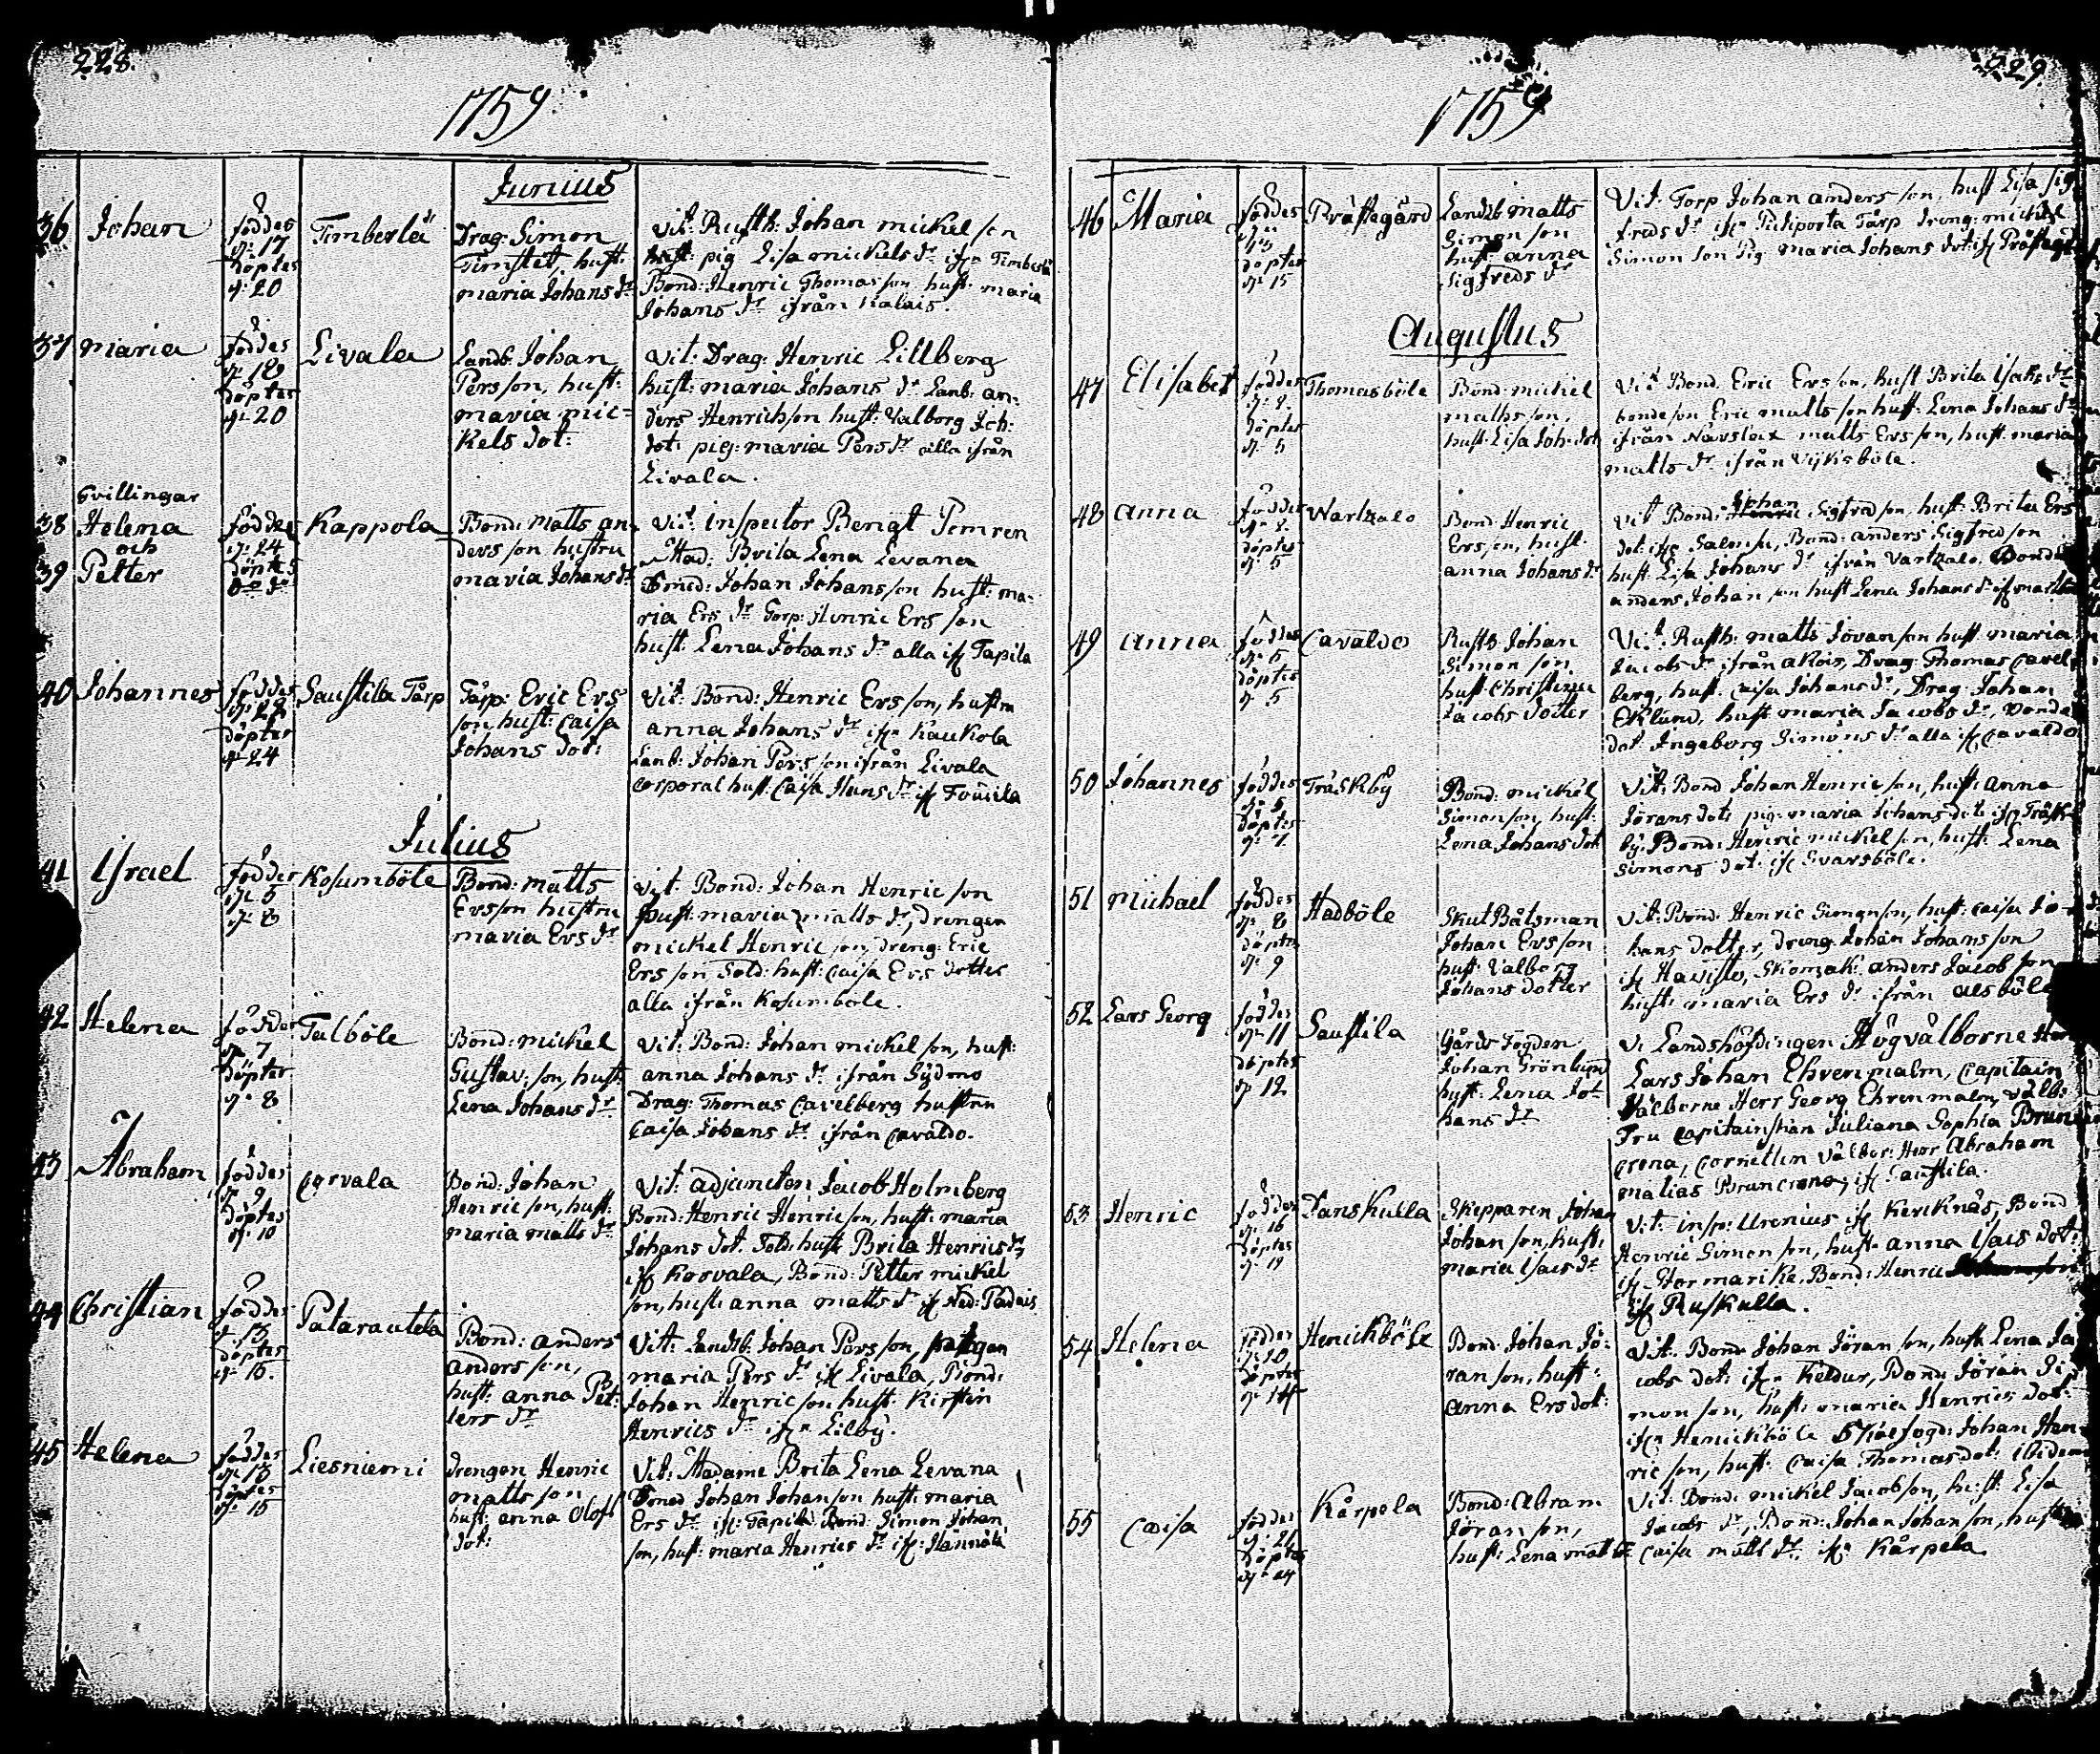 228.
1759
Junius
36 Johan
föddes
d. 17
döptes
d. 20
Timberlä
Drag: Simon
Timstét, hust:
maria Johans dr
Vit: Rusth: Johan mickel son
hust: pig Lisa mickels dr ifrn Timberlä
Bond: Henric Thomas son hust: maria
Johans dr ifrån Kalais.
37 maria
föddes
d. 18
döptes
d. 20
Livala
Landb. Johan
Persson, hust:
maria mic=
kels dot:
Vit: Drag: Henric Lillberg
hust: maria Johans dr Lanb: an-
ders Henrichson hust: Valborg Joh:
dot: pig: maria Pers dr alla ifrån
Livala.
Tvillingar
38 Helena
och
39 Petter
föddes
d. 24
döptes
do do
Kappola
Bond: Matts an-
ders son hustru
maria Johans dr
Vit: inspector Bengt Pemren
Mad: Brita Lena Levana
Smed: Johan Johansson hust: ma-
ria Ers dr Torp: Henric Ers son
hust: Lena Johans dr alla if Tapila
40 Johannes
föddes
döptes
d. 24
Saustila Tårp
Tårp: Eric Ers
son, hust: Caisa
Johans dot:
Vit: Bond: Henric Ersson, hustru
anna Johans dr ifrn Kaukola
Lanb: Johan Persson ifrån Livala
corporal hust: Caisa Hans dr if
Julius
41 Israel
föddes
d. 5
d. 8
Kosumböle
Bond: Matts
Ersson hustru
maria Ers dr
Vit: Bond: Johan Henric son
hust: maria matts dr, drengen
mickel Henric son, dreng: Eric
Ers son Sold: hust: Caisa Ers dotter
alla ifrån Kosumböle.
42 Helena
föddes
d. 7
döptes
d. 8
Talböle
Bond: mickel
Gustav: son, hust:
Lena Johans dr
Vit: Bond: Johan mickel son, hust:
anna Johans dr ifrån Gydmo
Drag: Thomas Cavelberg hustru
Caisa Johans dr ifrån Cavaldo.
43 Abraham
föddes
d. 9
döptes
d. 10
Corvala
Bond: Johan
Henric son, hust:
maria matts dr
Vit: adjuncten Jacob Holmberg
Bond: Henric Henric son, hust: maria
Johans dot. Sold: hust: Brita Henrics dr
if Korvala, Bond: Petter mickel
son, hust: anna matts dr if Ned: Pådais
44 Christian
föddes
d. 13
döptes
d. 15.
Patarautela
Bond: anders
anders son,
hust: anna Pet-
ters dr
Vit: Landb. Johan Pers son, pigan
maria Pers dr if Livala, Bond:
Johan Henric son hust: Kirstin
Henrics dr ifrn Lilby.
45 Helena
föddes
d. 13
döptes
d. 15
Liesniemi
drengen Henric
matts son
hust: anna Olofs
dot:
Vit: Madame Brita Lena Levana
Smed Johan Johanson hust: maria
Ers dr if: Tapila Bond: Simon Johan
son, hust: maria Henrics dr if:
229
1759
46 Maria
föddes
döptes
d. 15
Prästegård
Landb matts
Simon son
hust: anna
Sigfreds dr
Vit: Torp Johan anders son, hust Lisa Sig
freds dr ifrn Pukiporta Tårp dreng: mickel
Simon son Pig: maria Johans dot: if Prästegår
Augustus
47 Elisabet
föddes
döptes
d. 5
Thomasböle
Bond: mickel
mathsson,
hust: Lisa Joh: dot
Vit Bond. Eric Ersson, hust Brita Isaks dr
bondeson Eric mattsson hust: Lena Johans dr
ifrån Nävsbax matts Ersson, hust: maria
matts dr ifrån Vijksböle.
48 anna
föddes
döptes
d. 5
Wartzalo
Bond Henric
Ersson, hust.
anna Johans dr
Vit Bond: Johan Sigfredson, hust: Brita Ers
dot: Bond: anders Sigfredson
hust Lisa Johans dr ifrån Vartzalo. Bonde
anders Johan son hust Lena Johans dr
49 anna
föddes
d. 5
döptes
d. 5
Cavaldo
Rusth Johan
Simon son
hust Christina
Jacobs dotter
Vit: Rusth: matts Jövanson hust maria
Jacobs dr ifrån akois, Drag: Thomas Cavel
berg, hust: Caisa Johans dr, Drag Johan
Eklund, hust maria Jacobs dr, bonde
dot Ingeborg Simons dr alla if Cavaldo
50 Johannes
föddes
d. 5
döptes
d. 7
Träskby
Bond: mickel
Simonson, hust:
Lena Johans dot
Vit: Bond Johan Henricson, hust: anna
Jörans dot: pig: maria Johans dot: if Träsk-
by. Bond: Henric mickelson, hust: Lena
Simons dot: if Svarsböle.
51 michael
föddes
d. 8
döptes
d. 9
Hadböle
Skut Båtsman
Johan Ersson
hust: Valborg
Johans dotter
Vit: Bond: Henric Simonson, hust: Caisa Jo-
hans dotter, dreng Johan Johansson
if Havisto, Skomak: anders Jacob son
hust: maria Ers dr ifrån alsböle
52 Lars Georg
föddes
d. 11
döptes
d. 12
Saustila
Gårds Fogden
Johan Grönlund
hust: Lena Jo-
hans dr
Vi Landshöfdingen Högvälborne Her
Lars Johan Ehrenmalm, Capitain
Välborne Herr Georg Ehrenmalm, Välb:
Fru Capitainskan Juliana Sophia Brun
crona, Cornetten Välbor: Herr Abraham
matias Bruncrona, if Saustila.
53 Henric
föddes
d. 16
döptes
d. 19
Danskulla
Skepparen Johan
Johan son, hust:
maria Isacs dr
Vit: insp: Urenius if Kerknäs, Bond
Henric Simonson, hust: anna Isacs dot:
if Stormarike, Bond: Henric
if Ruskulla.
54 Helena
föddes
d. 10
döptes
d. 14
Henickböle
Bond: Johan Jö-
ran son, hust:
anna Ers dot:
Vit: Bond Johan Jöran son, hust Lena Ja
cobs dot: ifrn Keldur, Bond: Jöran Si
mon son, hust: maria Henrics dot:
ifrn Henickböle fogd: Johan Hen-
ric son, hust: Caisa Thomas dot: Ibidem
55 Caisa
föddes
d. 21
döptes
d. 24
Kårpela
Bond: Abram
Jöranson,
hust: Lena matts dr
Vit: Bond: mickel Jacobson, hust: Lisa
Jacobs dr, Bond: Johan Johanson, hust
Caisa matts dr. ifrn Kårpela